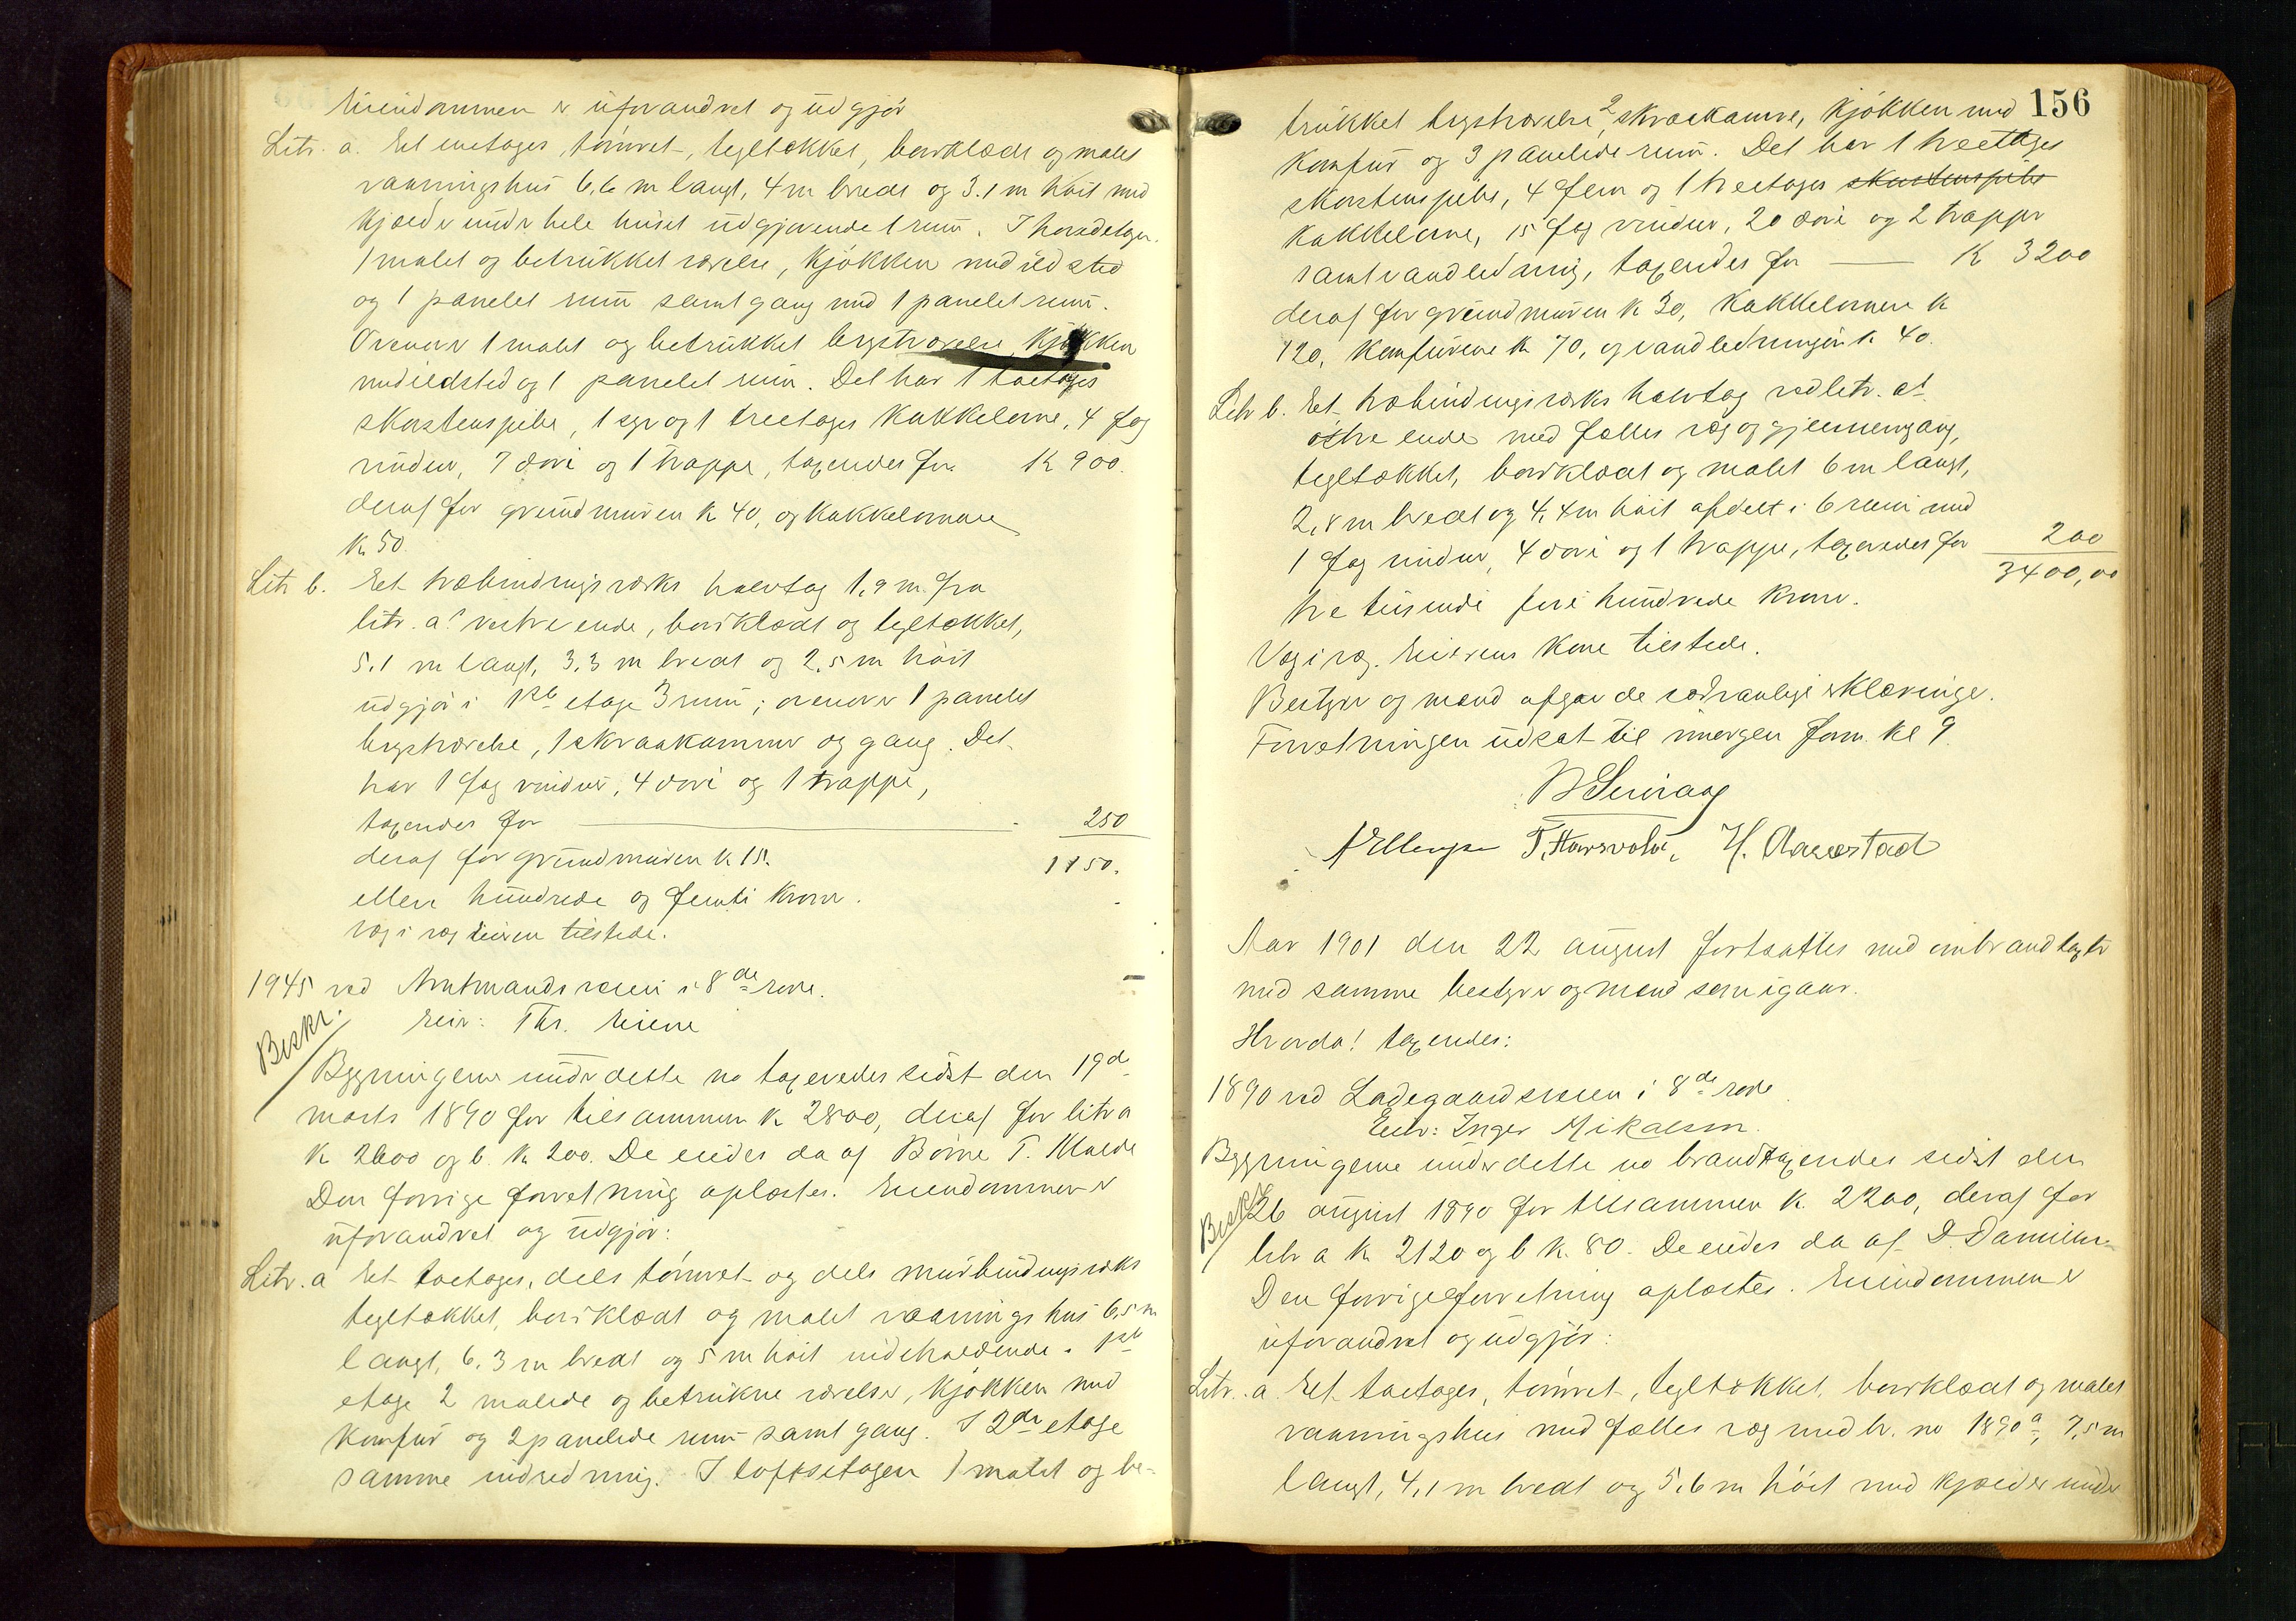 Eiendommen er uforandret og udgjør
Litr. a. Et enetages, tømret, tegltækket, bordklædt og malet
vaaningshus 6,6 m langt, 4 m bredt og 3.1 m høit med
kjælder under hele huset udgjørende 1 rum. I hovedetagen
1 malet og betrukket værelse, kjøkken med ildsted
og 1 panelet rum samt gang med 1 panelet rum.
Ovenover 1 malet og betrukket kvistværelse, kjøkken
med ildsted og 1 panelet rum. Det har 1 toetages
skorstenspibe, 1 og 1 treetages kakkelovne, 4 fag
vinduer, 7 døre og 1 trappe, taxeredes for K 900.
deraf for grundmuren k 40, og kakkelovnene
k 50.
Litr b. Et træbindingsværks halvtag 1,9 m. fra
litr. a.s vestre ende, bordklædt og tegltækket,
5.1 m langt, 3.3 m bredt og 2,5 m høit
udgjør i 1ste etage 3 rum; ovenover 1 panelet
kvistværelse, 1 skraakammer og gang. Det
har 1 fag vinduer, 4 døre og 1 trappe,
taxeredes for 250
deraf for grundmuren k 15. 1150.
elleve hundrede og femti kroner.
væg i væg Eieren tilstede.
1945 ved Amtmandsveien i 8de rode.
Eier: Thr. Eiene
Beskr.
Bygningerne under dette no taxeredes sidst den 19de
marts 1890 for tilsammen k 2800, deraf for litr a
k 2600 og b. k 200. De eiedes da af Børre T. Malde
Den forrige forretning oplæstes. Eiendommen er
uforandret og udgjør:
Litr. a Et toetages, dels tømret og dels murbindingsværks
tegltækket, bordklædt og malet vaaningshus 6,5 m
langt, 6.3 m bredt og 5 m høit indeholdende i 1ste
etage 2 malede og betrukne værelser, kjøkken med
komfur og 2 panelede rum samt gang. I 2den etage
samme indredning. I loftsetagen 1 malet og be-
156
trukket kvistværelse, 2 skraakamre, kjøkken med
komfur og 3 panelede rum. Det har 1 treetages
skorstenspibe, 4 fem og 1 treetages skorstenspibe
kakkelovne, 15 fag vinduer, 20 døre og 2 trapper
samt vandledning, taxeredes for K 3200
deraf for grundmuren k 30, kakkelovnene k
120, komfurene k 70, og vandledningen k 40.
Litr b. Et træbindingsværks halvtag ved litr. a.s
østre ende med fælles væg og gjennemgang,
tegltækket, bordklædt og malet 6 m langt,
2,8 m bredt og 4,4 m høit afdelt i 6 rum med
1 fag vinduer, 4 døre og 1 trappe, taxeredes for 200
3400,00
tre tusinde fire hundrede kroner.
Væg i væg. Eierens kone tilstede.
Bestyrer og mænd afgav de sædvanlige erklæringer.
Forretningen udsat til imorgen form. kl 9.
H. Aarrestad
Aar 1901 den 22 august fortsattes med ombrandtaxter
med samme bestyrer og mænd som igaar.
Hvorda! taxeredes:
1890 ved Ladegaardsveien i 8de rode
Eier: Inger Mikalsen.
Bygningerne under dette no brandtaxeredes sidst den
Beskr.
26 august 1890 for tilsammen k. 2200, deraf for
litr a k 2120 og b k. 80. De eiedes da af D. Danielsen
Den forrige forretning oplæstes. Eiendommen er
uforandret og udgjør:
Litr. a. Et toetages, tømret, tegltækket, bordklædt og malet
vaaningshus med fælles væg med br. no 1890a, 7,5 m
langt, 4,1 m bredt og 5,6 m høit med kjælder under